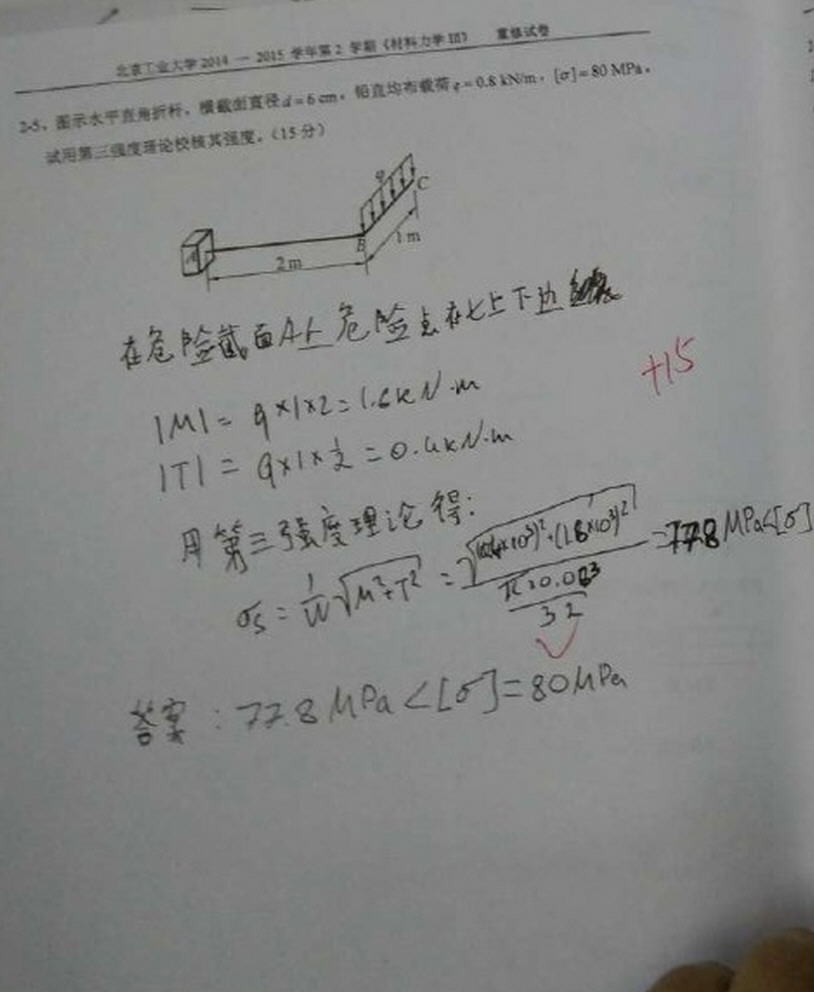 北京工业大学2014 — 2015 学年第2 学期《材料力学 III》 重修试卷
2-5、图示水平直角折杆,横截面直径d=6 cm,铅直均布载荷q=0.8 kN/m,[σ]=80 MPa。
试用第三强度理论校核其强度。(15分)
q
C
A
B
1 m
2 m
在危险截面A上 危险点在上下边
|M| = q×1×2=1.6kN·m
+15
|T| = q×1×½ =0.4kN·m
用第三强度理论得:
σ₃ = 1/W √M²+T² = =77.8 MPa<[σ]
32
答案:77.8 MPa<[σ]=80MPa